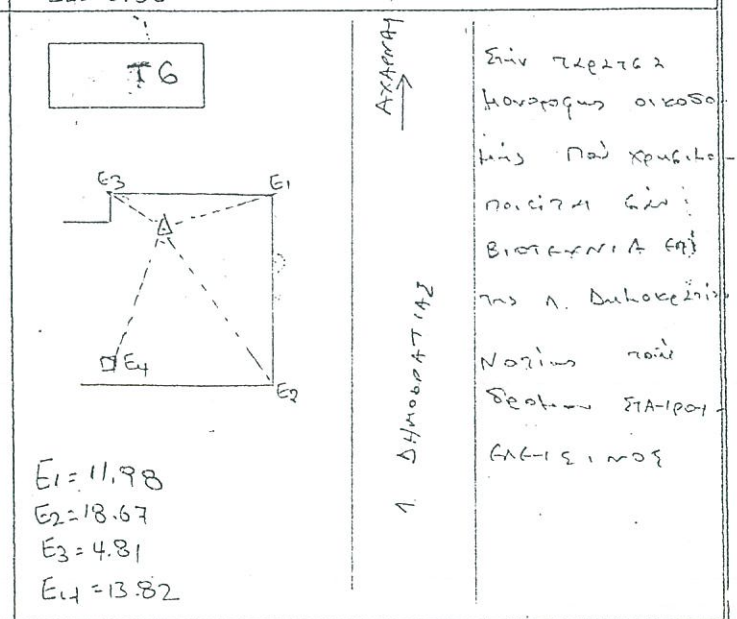 T6
E3
E1
Δ
E4
E2
E1 = 11.98
E2 = 18.67
E3 = 4.81
E4 = 13.82
ΑΧΑΡΝΑΙ
Λ. ΔΗΜΟΚΡΑΤΙΑΣ
Στήν ταράτσα
μονοροφης οικοδο
μής που χρησιμο-
ποιείται σάν
ΒΙΟΤΕΧΝΙΑ επί
της Λ. Δημοκρατίας
Νοτίως τών
δρόμων ΣΤΑΥΡΟΥ-
ΕΛΕΥΣΙΝΟΣ